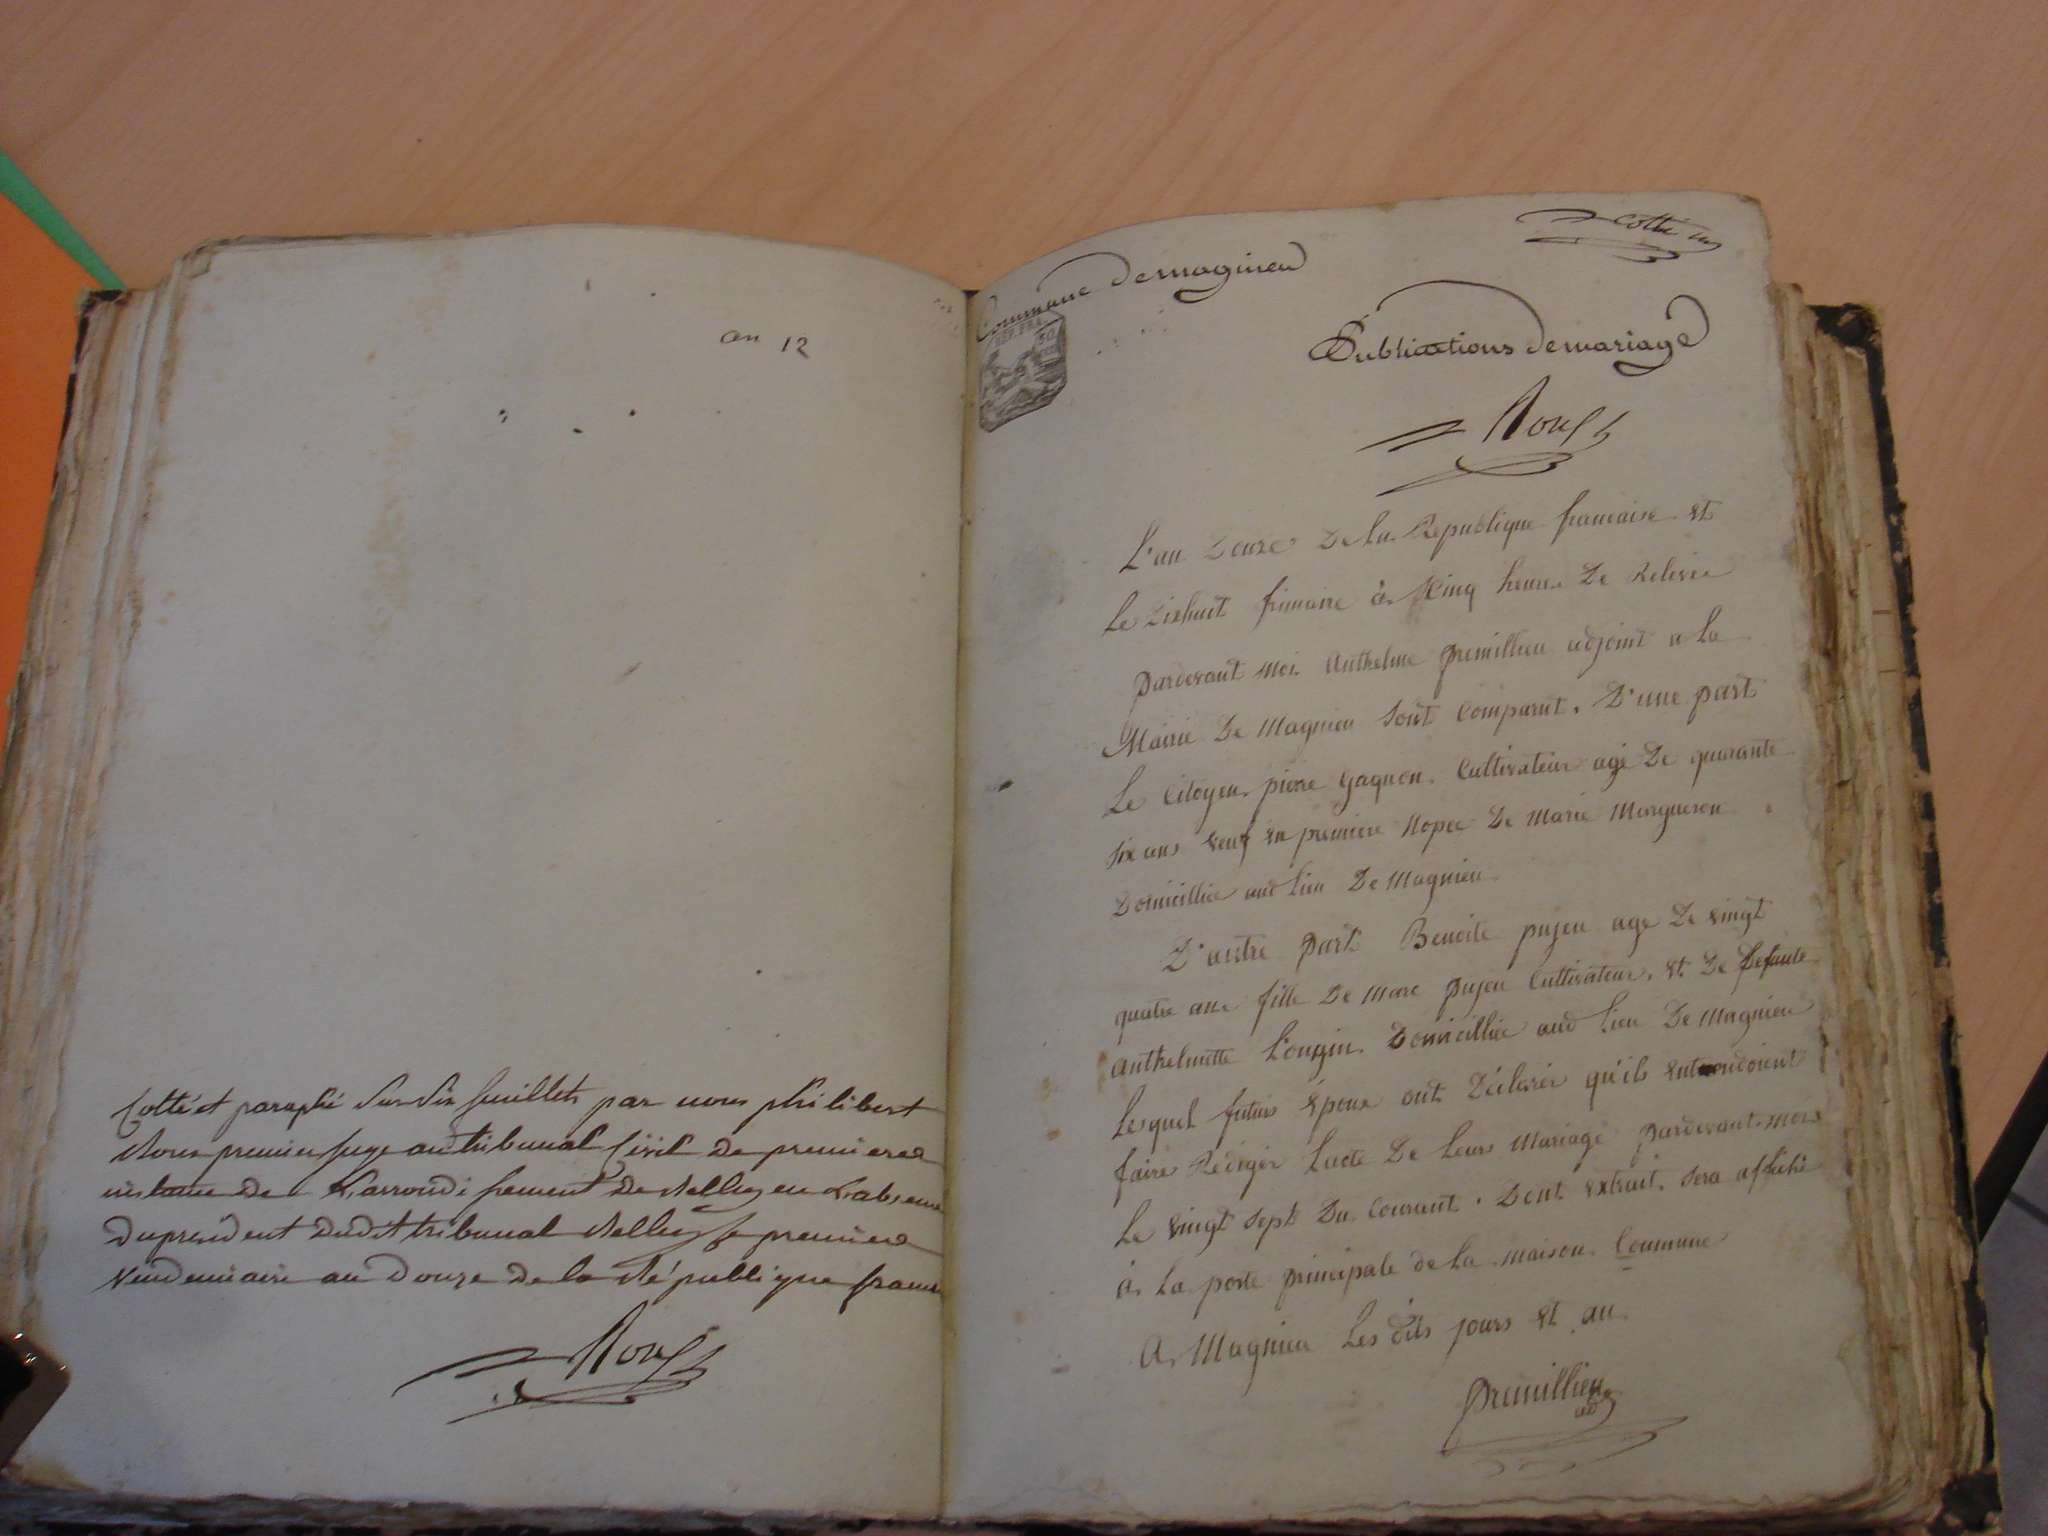 an 12
Cotté et paraphé sur six feuillets par nous philibert
Roux premier juge au tribunal Civil de premiere
instance de L'arrondissement de Belley en L'absence
du president dudit tribunal Belley le premier
vendemiaire an douze de la République
Roux
Cotté un
Commune de magnieu
REP. FRA.
50
Publications de mariage
Roux
L'an Douze De la Republique francaise et
Le Dixhuit frimaire à Cinq heure De Relevée
pardevant moi Anthelme premillieu adjoint a la
Mairie De Magnieu sont Comparut. D'une part
Le Citoyen pierre gagnon Cultivateur agé De quarante
six ans veuf en premiere Nopce De Marie Margueron
Domicillié aud lieu De Magnieu
D'autre part Benoite pujeu age De vingt
quatre ans fille De Marc pujeu Cultivateur, et De Defunte
Anthelmette Domicillié aud lieu De Magnieu
Lesquel futurs époux ont Déclarér qu'ils entendoient
faire Rédiger Lacte De Leurs Mariage pardevant moi
Le vingt sept Du Courant. Dont extrait sera affiché
à La porte principale de la maison Commune
A Magnieu Les dits jours et an
premillieu
adj